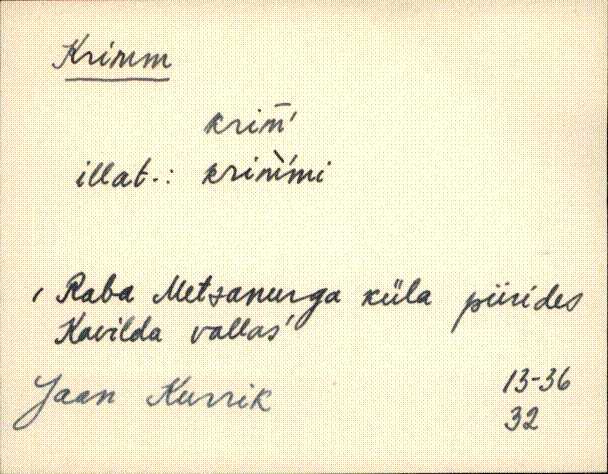 Krimm
krim̄'
illat.: krim̀'mi
' Raba Metsanurga küla piirides
Kavilda vallas'
Jaan Kurrik
13-36
32